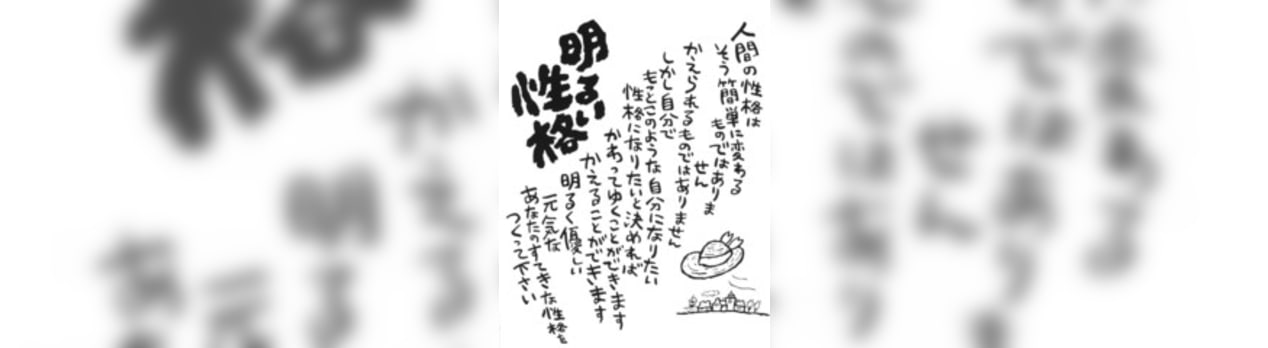 明るい
性格
人間の性格は
そう簡単に変わる
ものではありま
せん
かえられるものではありません
しかし自分で
もっとこのような自分になりたい
性格になりたいと決めれば
かわってゆくことができます
かえることができます
明るく優しい
元気な
あなたのすてきな性格を
つくって下さい